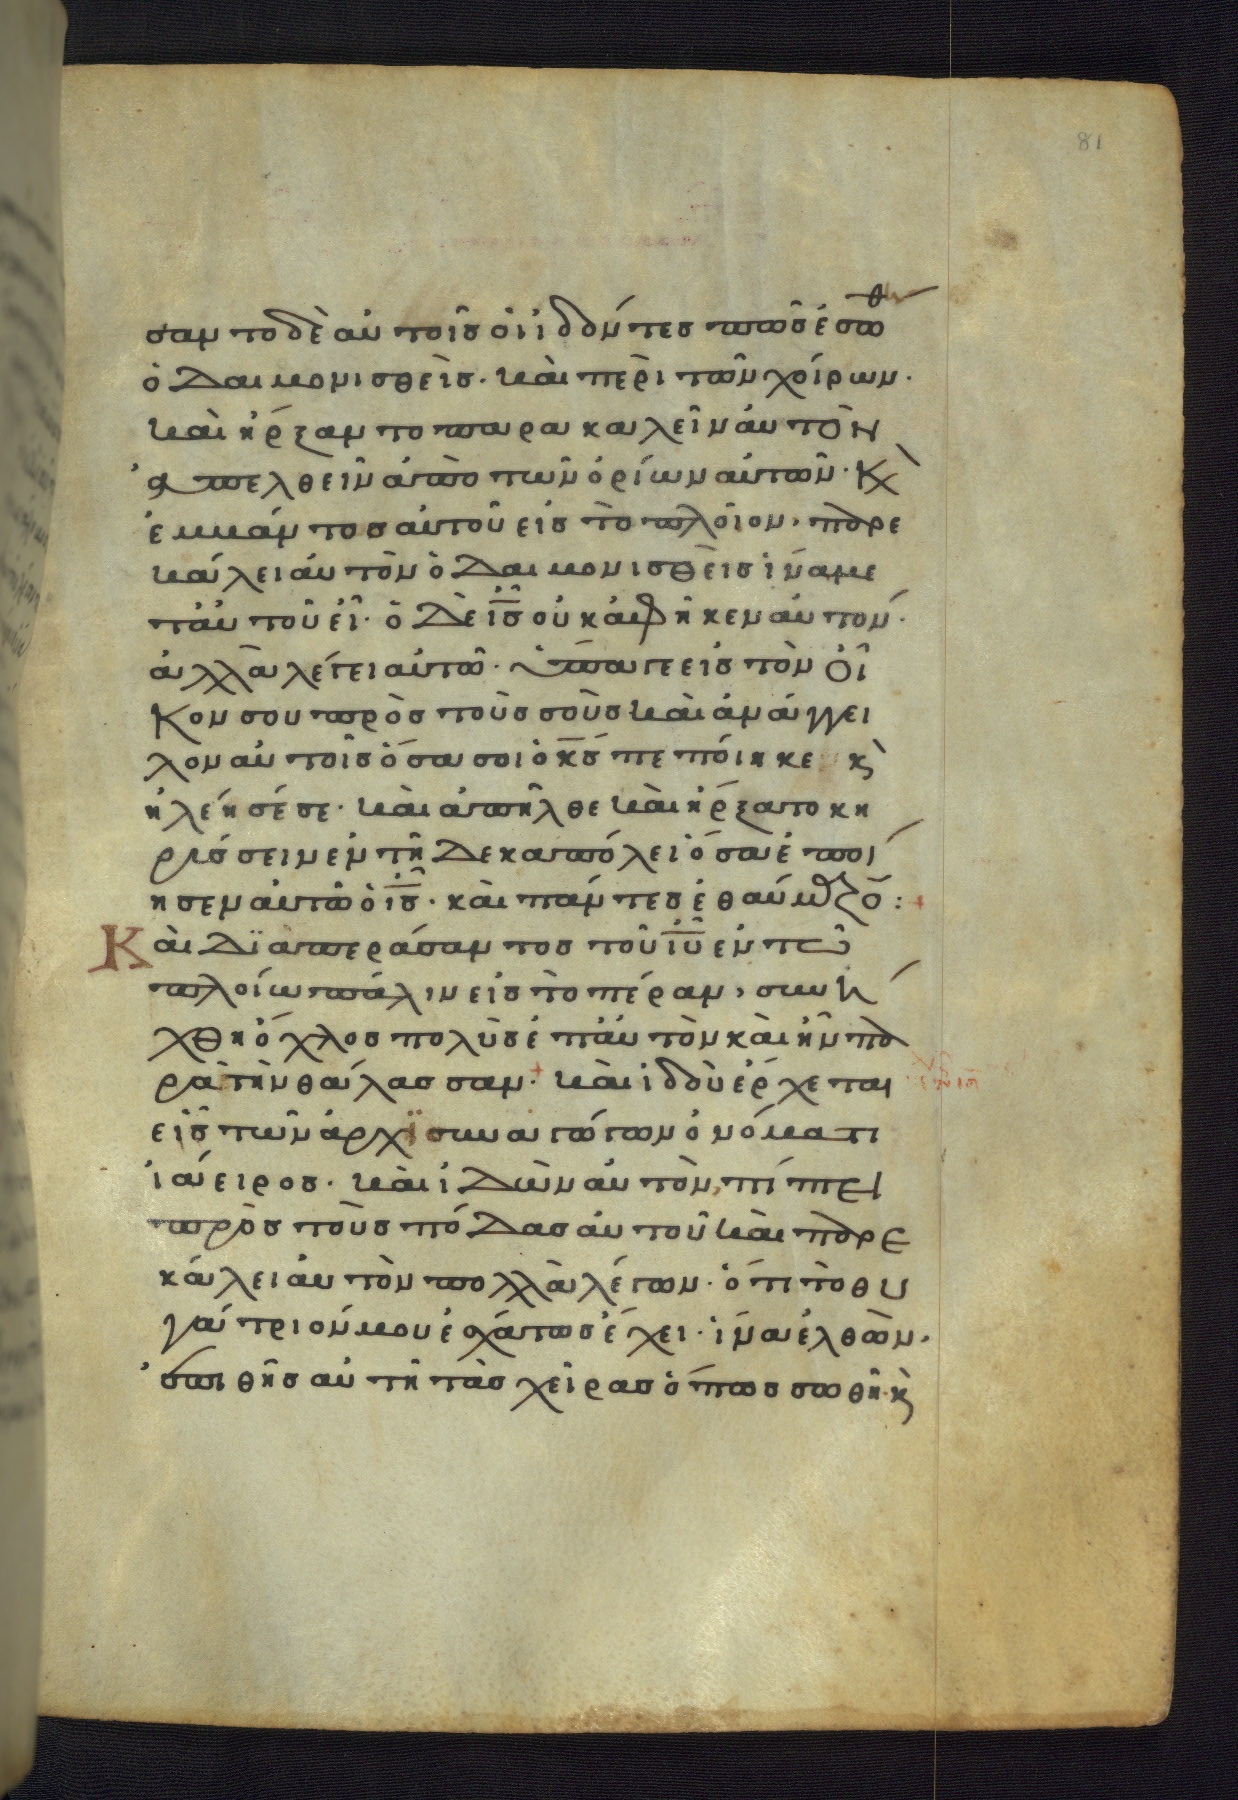 81
σαντο δὲ αὐτοῖς οἱ ἰδόντες πῶς ἐσώθη
ὁ δαιμονισθεὶς. καὶ περὶ τῶν χοίρων.
καὶ ἤρξαντο παρακαλεῖν αὐτὸν
ἀπελθεῖν ἀπὸ τῶν ὁρίων αὐτῶν. κὶ
ἐμβάντος αὐτοῦ εἰς τὸ πλοῖον, παρε
κάλει αὐτὸν ὁ δαιμονισθεὶς ἵνα με
τ' αὐτοῦ εἶ. ὁ δὲ ι̅ς̅ οὐκ ἀφῆκεν αὐτόν.
ἀλλὰ λέγει αὐτῶ. ὕπαγε εἰς τὸν οἶ
κον σου πρὸς τοὺς σοὺς καὶ ἀνάγγει
λον αὐτοῖς ὅσα σοι ὁ κ̅ς̅ πεποίηκε κὶ
ἠλέησέ σε. καὶ ἀπῆλθε καὶ ἤρξατο κη
ρύσσειν ἐν τῆ Δεκαπόλει ὅσα ἐποί
ησεν αὐτῶ ὁ ι̅ς̅. καὶ πάντες ἐθαύμαζον:
Καὶ διαπεράσαντος τοῦ ι̅υ̅ ἐν τῶ
πλοίω πάλιν εἰς τὸ πέραν, συνή
χθη ὄχλος πολὺς ἐπ' αὐτὸν καὶ ἦν πα
ρὰ τὴν θάλασσαν. καὶ ἰδοὺ ἔρχεται
εἷς τῶν ἀρχϊσυναγώγων ὀνόματι
ἰάειρος. καὶ ἰδὼν αὐτὸν, πίπτει
πρὸς τοὺς πόδας αὐτοῦ καὶ παρε
κάλει αὐτὸν πολλὰ λέγων. ὅτι τὸ θυ
γάτριόν μου ἐσχάτως ἔχει. ἵνα ἐλθὼν,
ἐπιθῆς αὐτῆ τὰς χεῖρας ὅπως σωθῆ κὶ